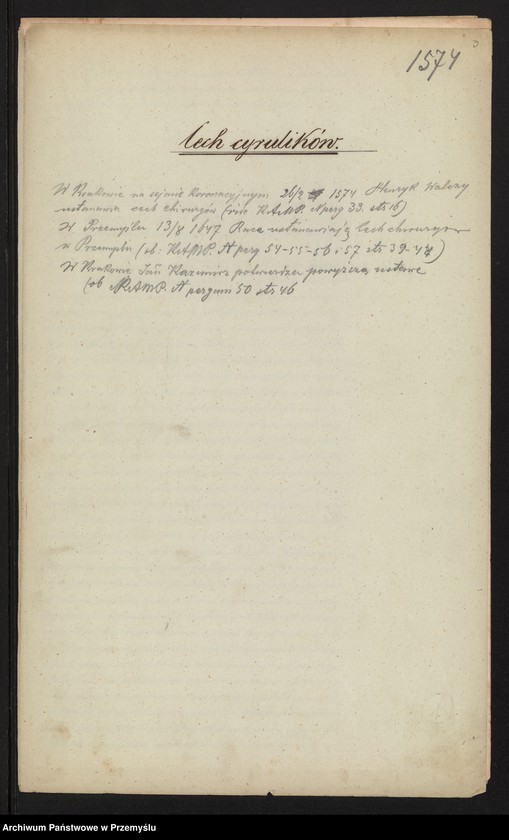 1574
Cech cyrulików.
W Krakowie na sejmie koronacyjnym 26/2 1574 Henryk Walezy
ustanawia cech chirurgów (vide K.A.M.P. N perg 33. str 16)
W Przemyślu 13/8 1647 Rada ustanawiają cech chirurgów
w Przemyślu (ob: K.A.M.P. N perg 54-55-56 i 57 str 39-47)
W Krakowie Jan Kazimierz potwierdza powyższą ustawę
(ob K.A.M.P. N pergam 50 str 46
Archiwum Państwowe w Przemyślu